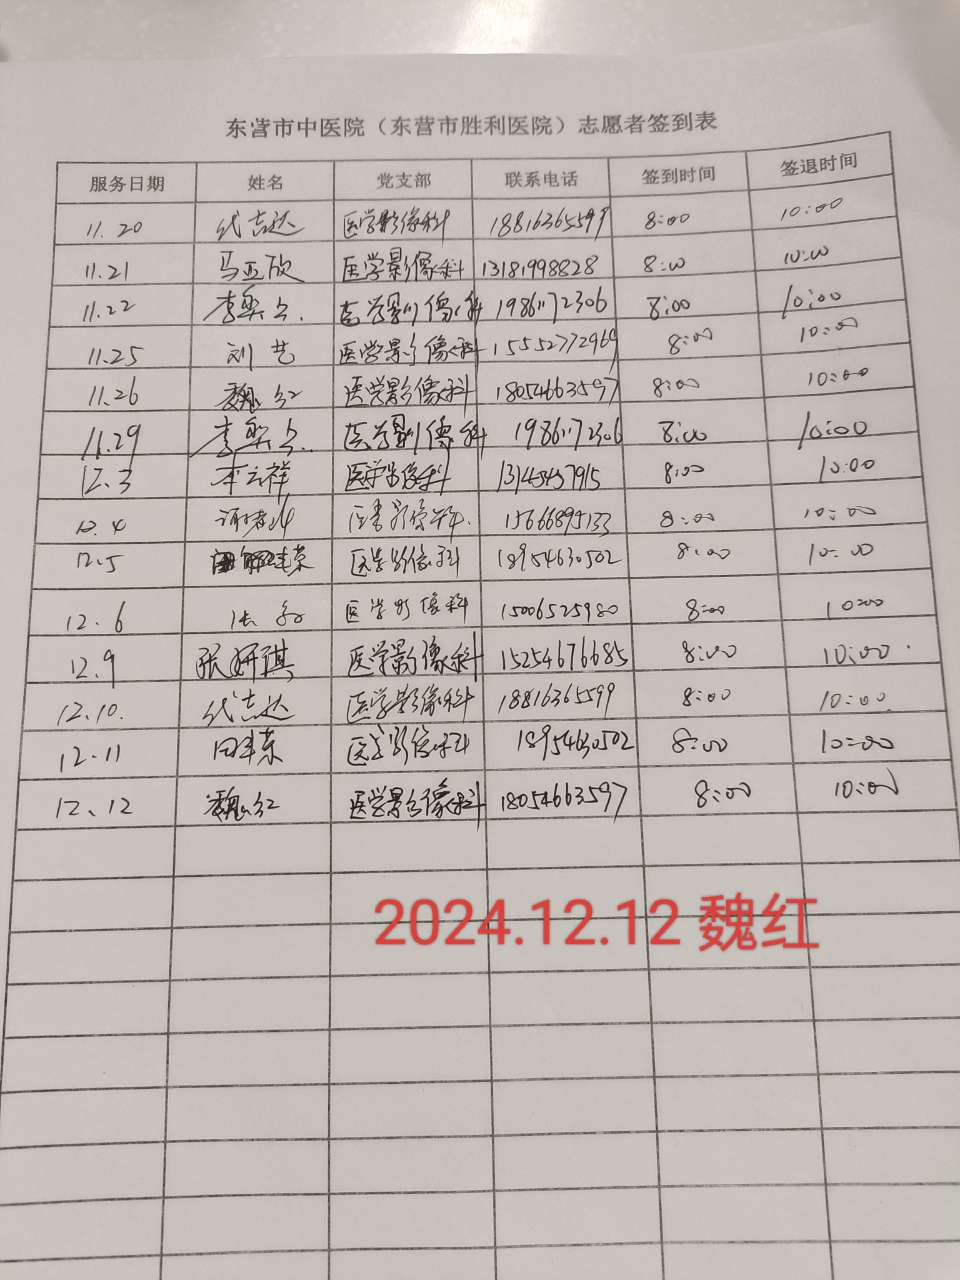 东营市中医院（东营市胜利医院）志愿者签到表
服务日期 姓名 党支部 联系电话 签到时间 签退时间
11.20 代志达 医学影像科 18816365599 8:00 10:00
11.21 马亚欣 医学影像科 13181998828 8:00 10:00
11.22 李 医学影像科 19861172306 8:00 10:00
11.25 刘艺 医学影像科 15552772969 8:00 10:00
11.26 魏红 医学影像科 18054663597 8:00 10:00
11.29 李 医学影像科 19861172306 8:00 10:00
12.3 李云祥 医学影像科 8:00 10:00
12.4 医学影像科 15666895133 8:00 10:00
12.5 医学影像科 18954630502 8:00 10:00
12.6 张 医学影像科 15006525980 8:00 10:00
12.9 张妍琪 医学影像科 15254676685 8:00 10:00
12.10. 代志达 医学影像科 18816365599 8:00 10:00
12.11 田丰荣 医学影像科 18954630502 8:00 10:00
12.12 魏红 医学影像科 18054663597 8:00 10:00
2024.12.12 魏红